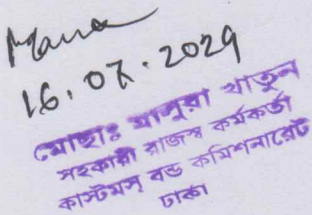 16.07.2029
মোছাঃ মাসুরা খাতুন
সহকারী রাজস্ব কর্মকর্তা
কাস্টমস্ বন্ড কমিশনারেট
ঢাকা